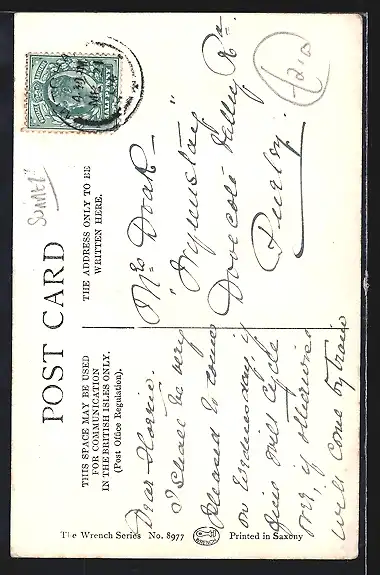 POST CARD
THIS SPACE MAY BE USED
FOR COMMUNICATION
IN THE BRITISH ISLES ONLY.
(Post Office Regulation).
THE ADDRESS ONLY TO BE
WRITTEN HERE.
Dear Florrie.
I shall be very
pleased to come
on Wednesday if
fine will cycle
over, if otherwise
will come by train
Mrs Doak
"Wynnstay"
Dovecote Valley Rd
Purley.
The Wrench Series No. 8977
WRENCH
Printed in Saxony
HALFPENNY